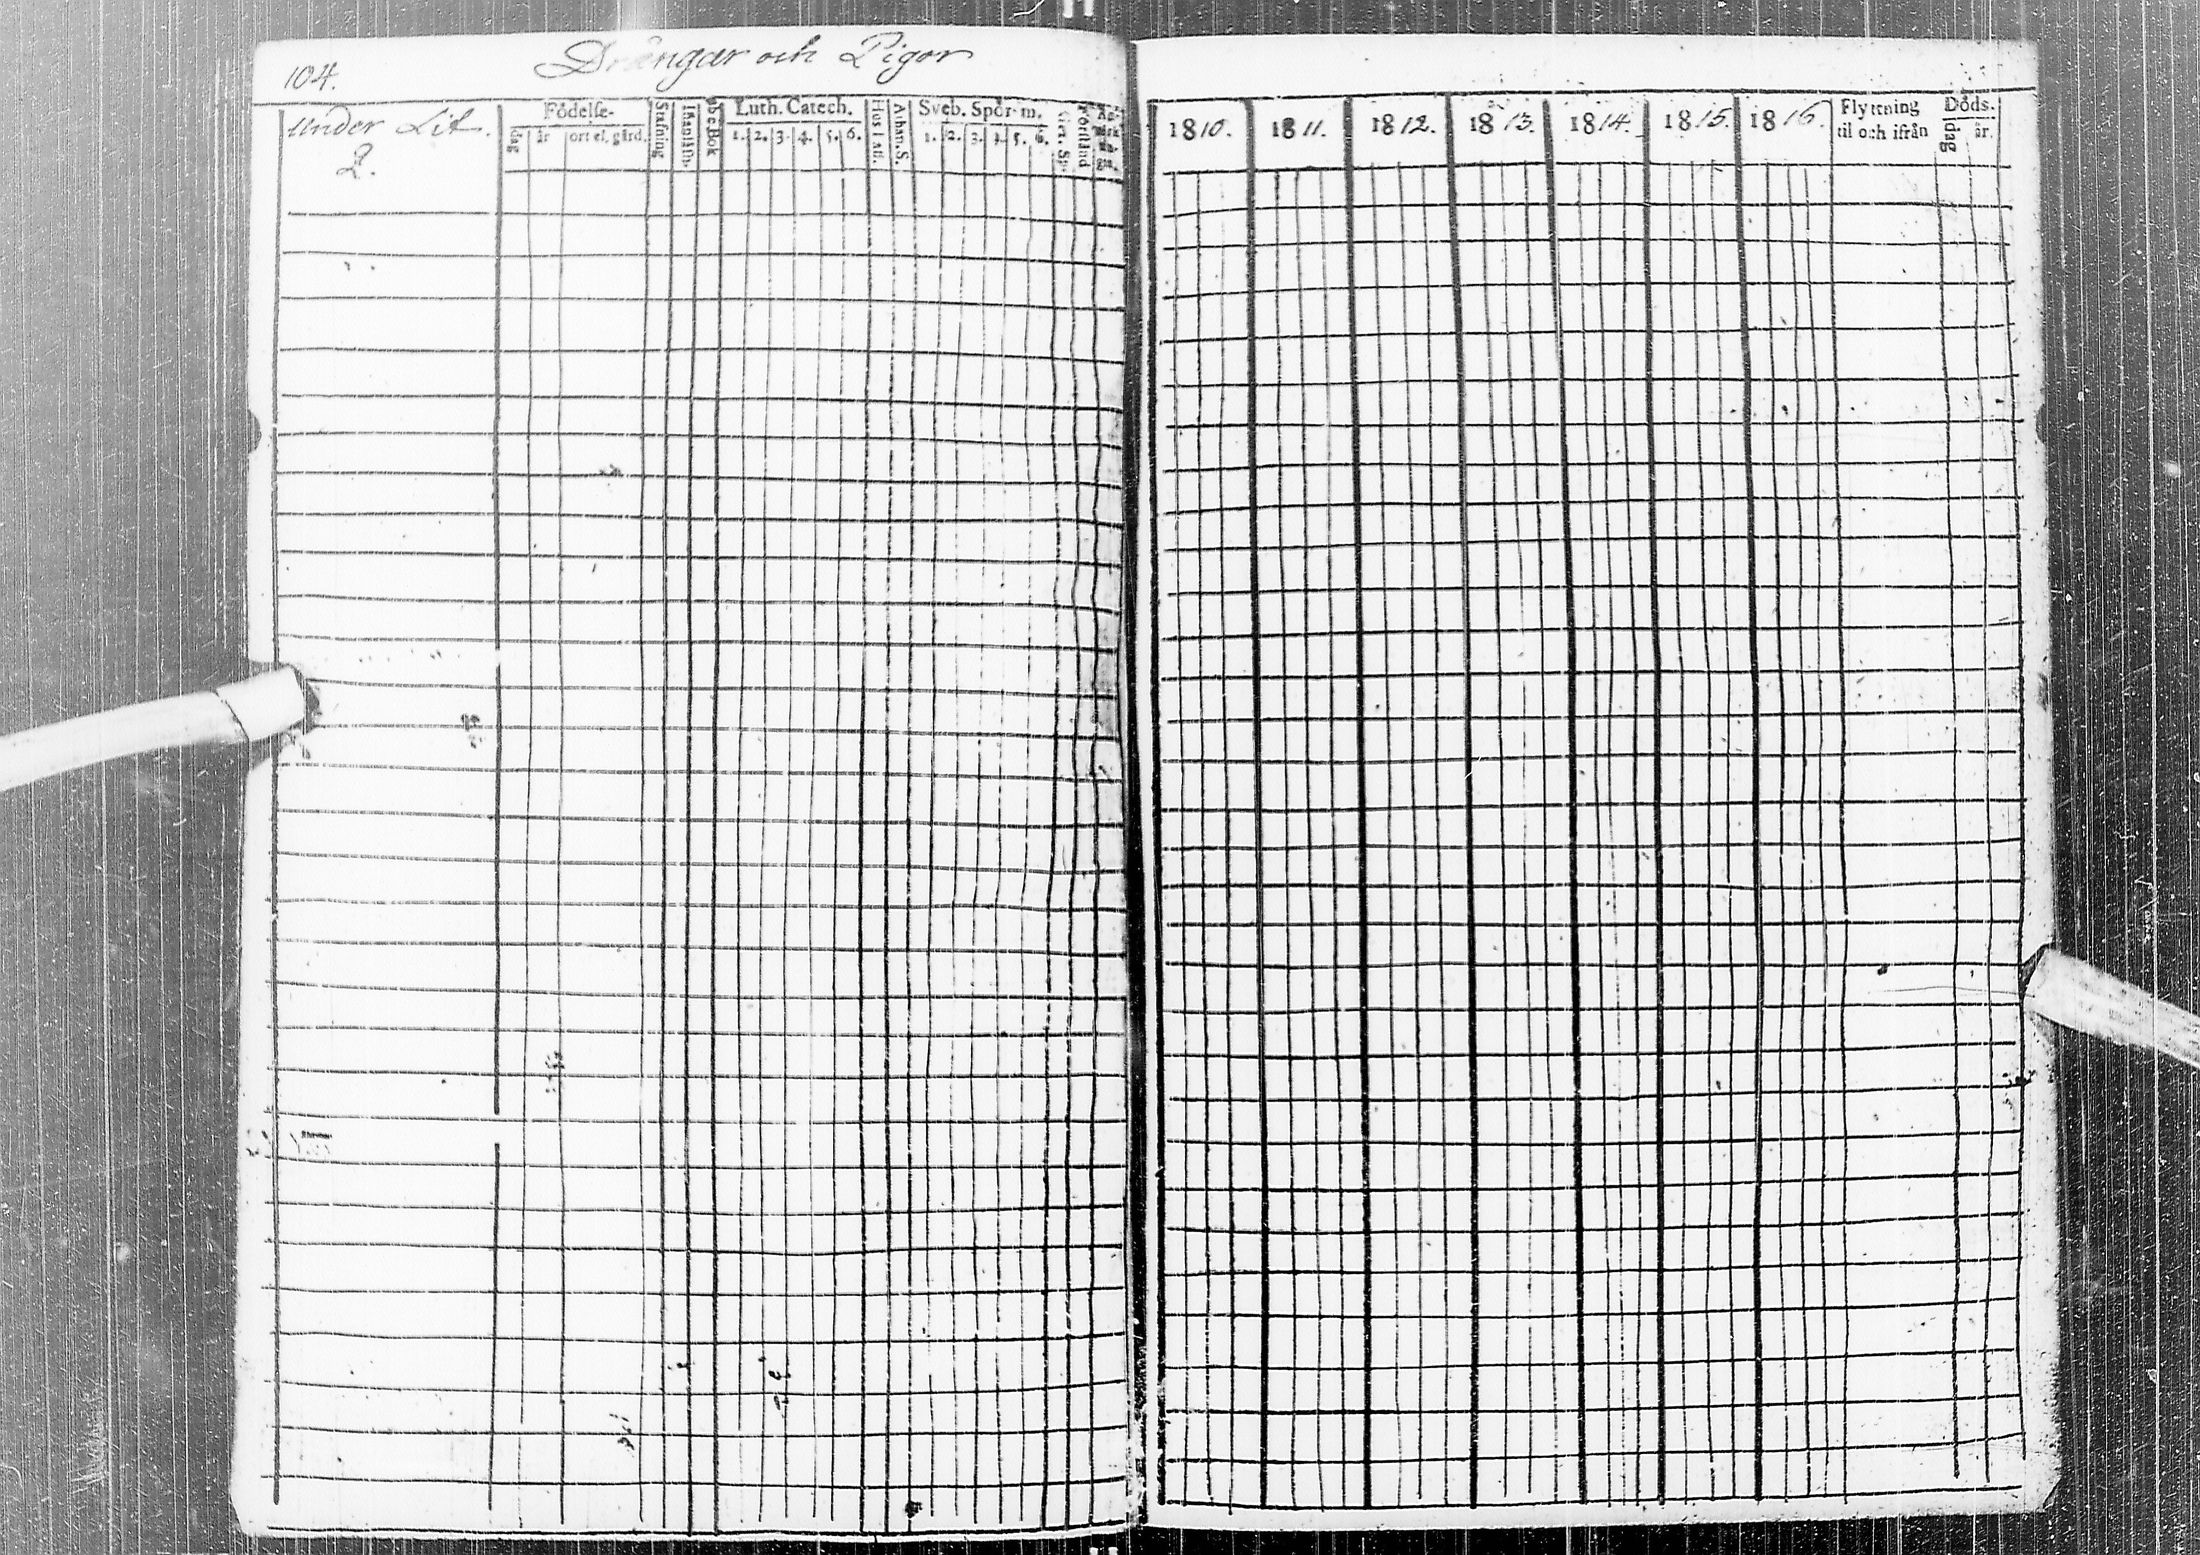 104.
Drängar och Pigor
under Lit.
2.
Födelse-
dag år ort el. gård.
Stafning
abc Bok
Luth. Catech.
1. 2. 3. 4. 5. 6.
Athan. S.
Sveb. Spör-m.
1. 2. 3. 4. 5. 6.
Förstånd
1810. 1811. 1812. 1813. 1814. 1815. 1816.
Flyttning
til och ifrån
Döds.
dag år.